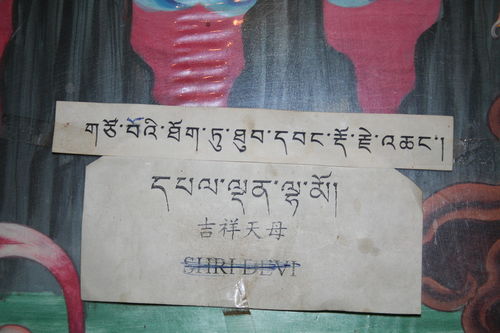 གཙོ་བོའི་ཐོག་ཏུ་ཐུབ་དབང་རྡོ་རྗེ་འཆང་།
དཔལ་ལྡན་ལྷ་མོ།
吉祥天母
SHRI DEVI